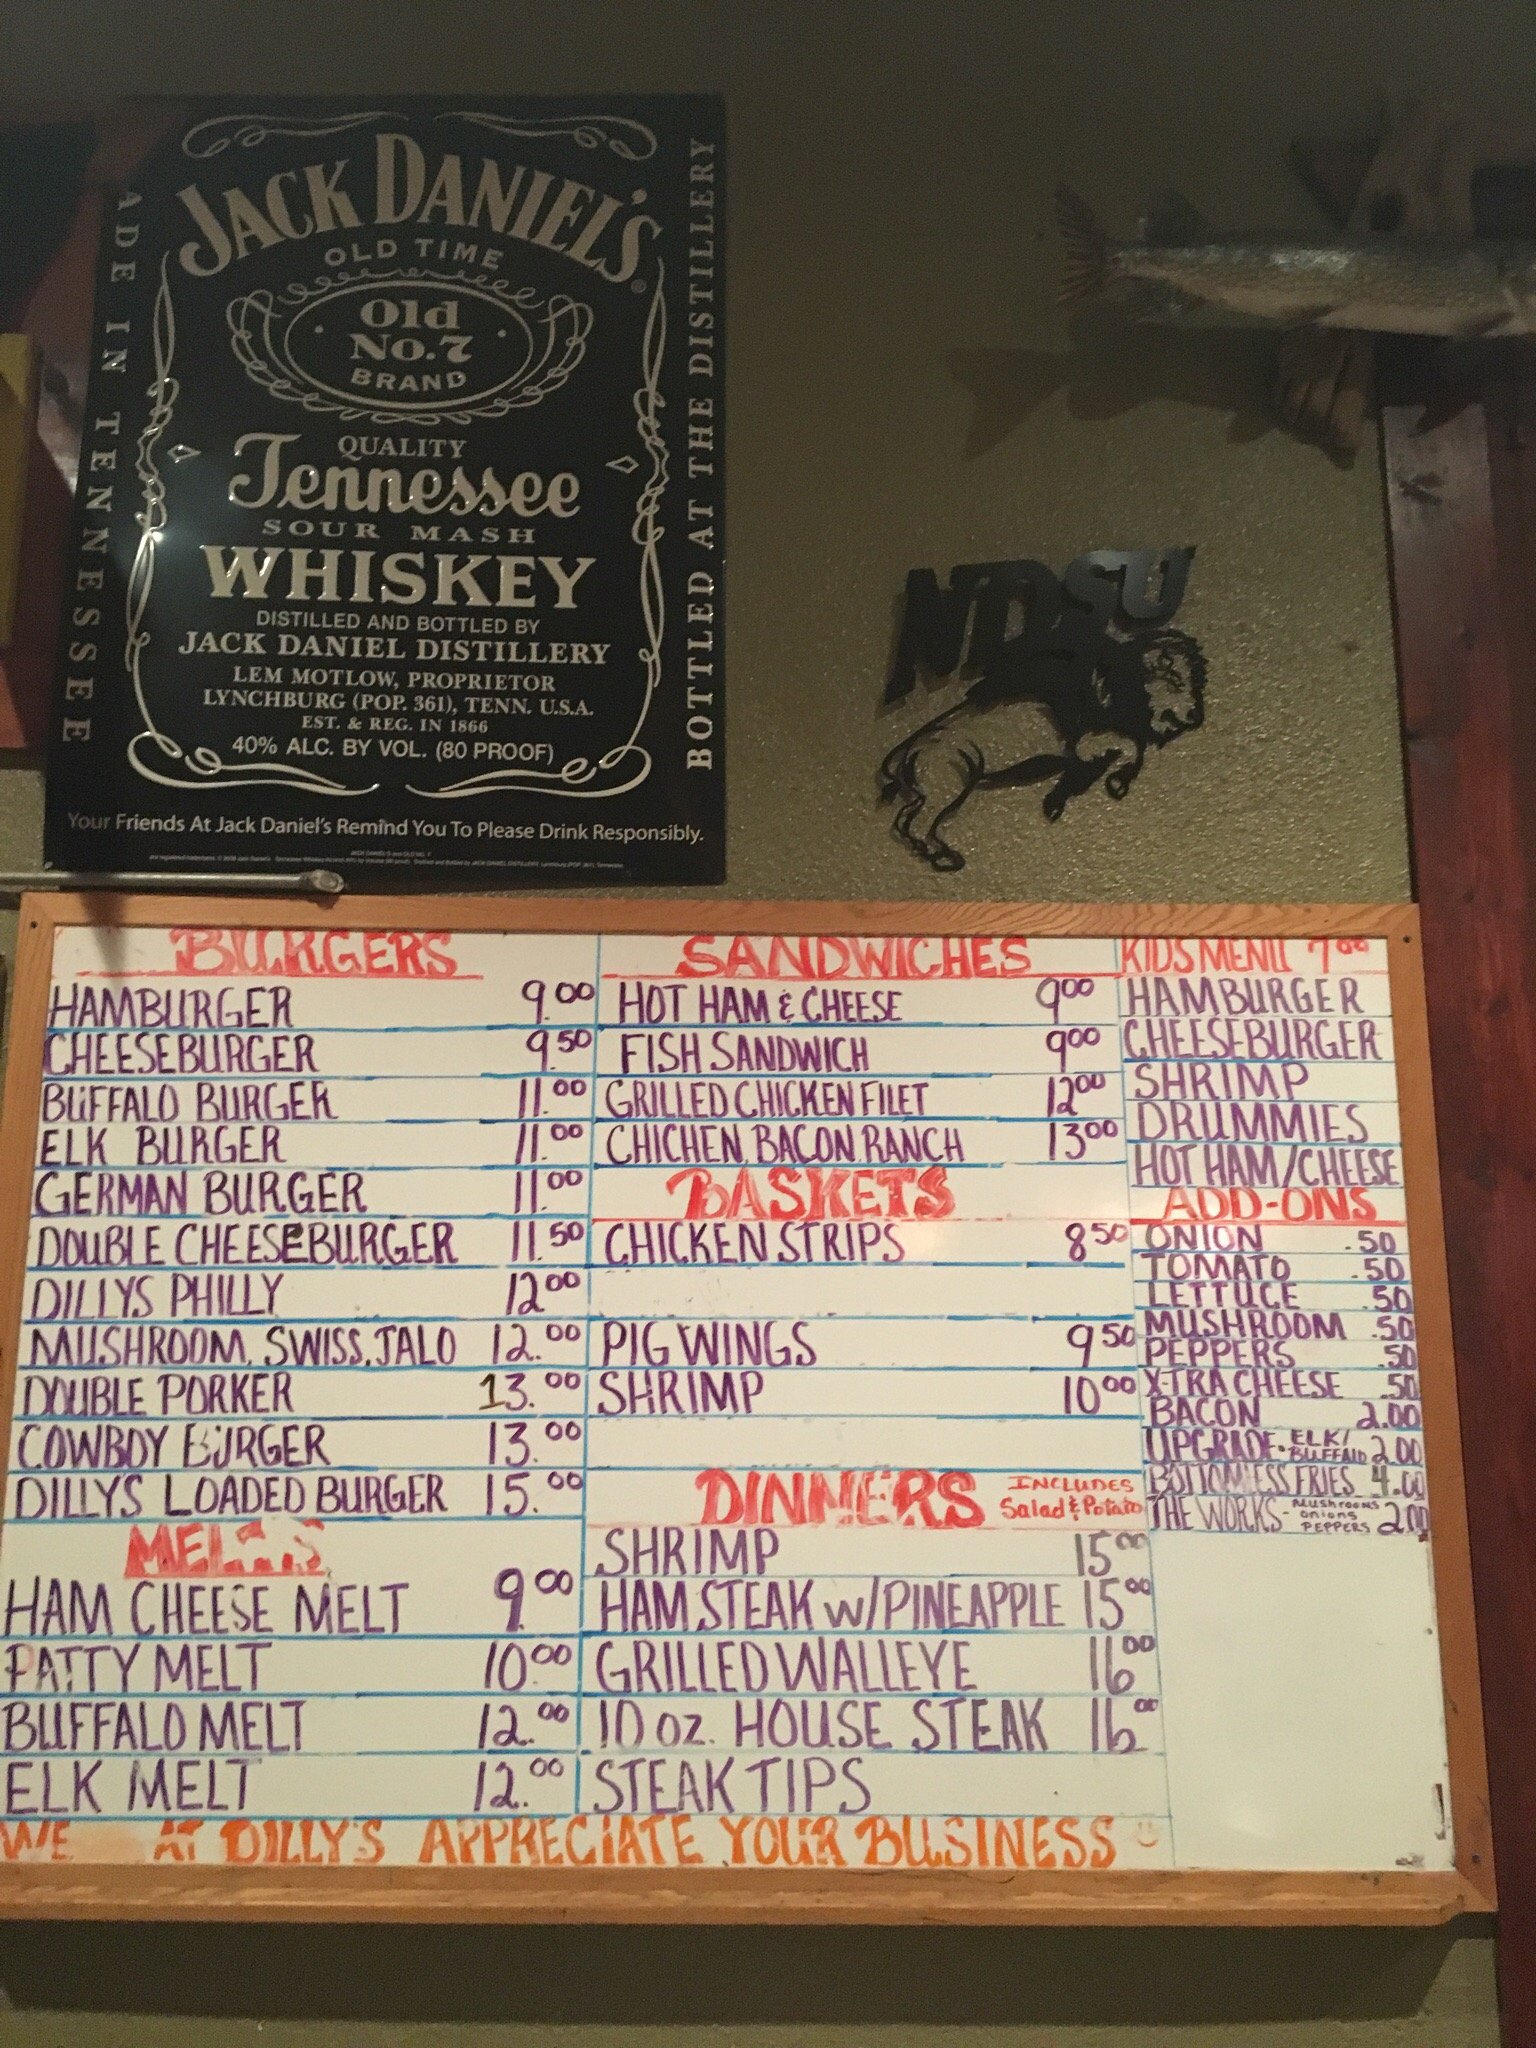 JACK DANIEL'S
OLD TIME
Old
No. 7
BRAND
QUALITY
Tennessee
SOUR MASH
WHISKEY
DISTILLED AND BOTTLED BY
JACK DANIEL DISTILLERY
LEM MOTLOW, PROPRIETOR
LYNCHBURG (POP. 361), TENN. U.S.A.
EST. & REG. IN 1866
40% ALC. BY VOL. (80 PROOF)
ADE IN TENNESSEE
BOTTLED AT THE DISTILLERY
Your Friends At Jack Daniel's Remind You To Please Drink Responsibly.
NDSU
BURGERS
HAMBURGER 9.00
CHEESEBURGER 9.50
BUFFALO BURGER 11.00
ELK BURGER 11.00
GERMAN BURGER 11.00
DOUBLE CHEESEBURGER 11.50
DILLYS PHILLY 12.00
MUSHROOM, SWISS, JALO 12.00
DOUBLE PORKER 13.00
COWBOY BURGER 13.00
DILLYS LOADED BURGER 15.00
MELTS
HAM CHEESE MELT 9.00
PATTY MELT 10.00
BUFFALO MELT 12.00
ELK MELT 12.00
SANDWICHES
HOT HAM & CHEESE 9.00
FISH SANDWICH 9.00
GRILLED CHICKEN FILET 12.00
CHICHEN, BACON, RANCH 13.00
BASKETS
CHICKEN STRIPS 8.50
PIG WINGS 9.50
SHRIMP 10.00
DINNERS INCLUDES
Salad & Potato
SHRIMP 15.00
HAM STEAK w/PINEAPPLE 15.00
GRILLED WALLEYE 16.00
10 oz. HOUSE STEAK 16.00
STEAK TIPS
KIDS MENU 7.00
HAMBURGER
CHEESEBURGER
SHRIMP
DRUMMIES
HOT HAM/CHEESE
ADD-ONS
ONION .50
TOMATO .50
LETTUCE .50
MUSHROOM .50
PEPPERS .50
X-TRA CHEESE .50
BACON 2.00
UPGRADE - ELK/BUFFALO 2.00
BOTTOMLESS FRIES 4.00
THE WORKS - MUSHROOMS ONIONS PEPPERS 2.00
WE AT DILLY'S APPRECIATE YOUR BUSINESS